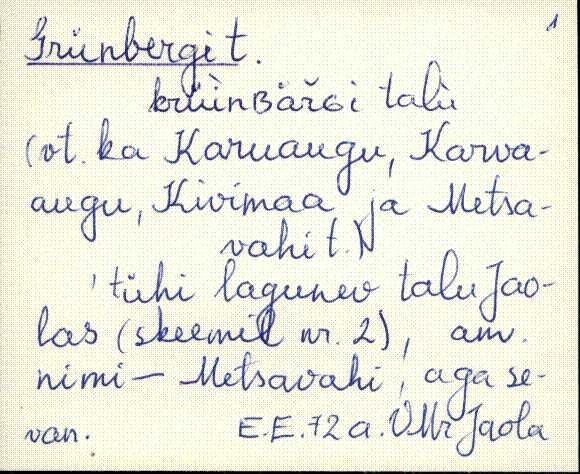 1
Grünbergi t.
krüùnʙäŕɢi talù
(vt. ka Karuaugu, Karva-
augu, Kivimaa ja Metsa-
vahi t.)
'tühi lagunev talu Jao-
las (skeemil nr. 2), am.
nimi - Metsavahi, aga se-
van. E.E. 72 a. ÜMr Jaola